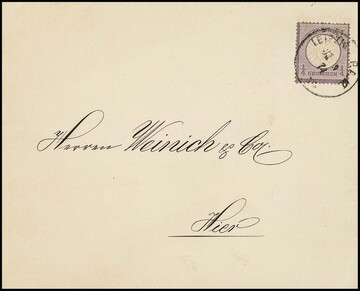 LEIPZIG
1/4 GROSCHEN 1/4
Herren Weinich & Co.
Hier